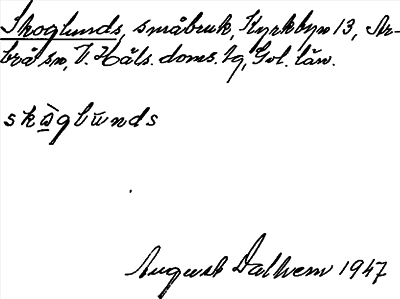 Skoglunds, småbruk, Kyrkbyn 13, Ar-
brå sn, V. Häls. doms. tg, Gvl. län.
skòglùnds
August Dalhem 1947